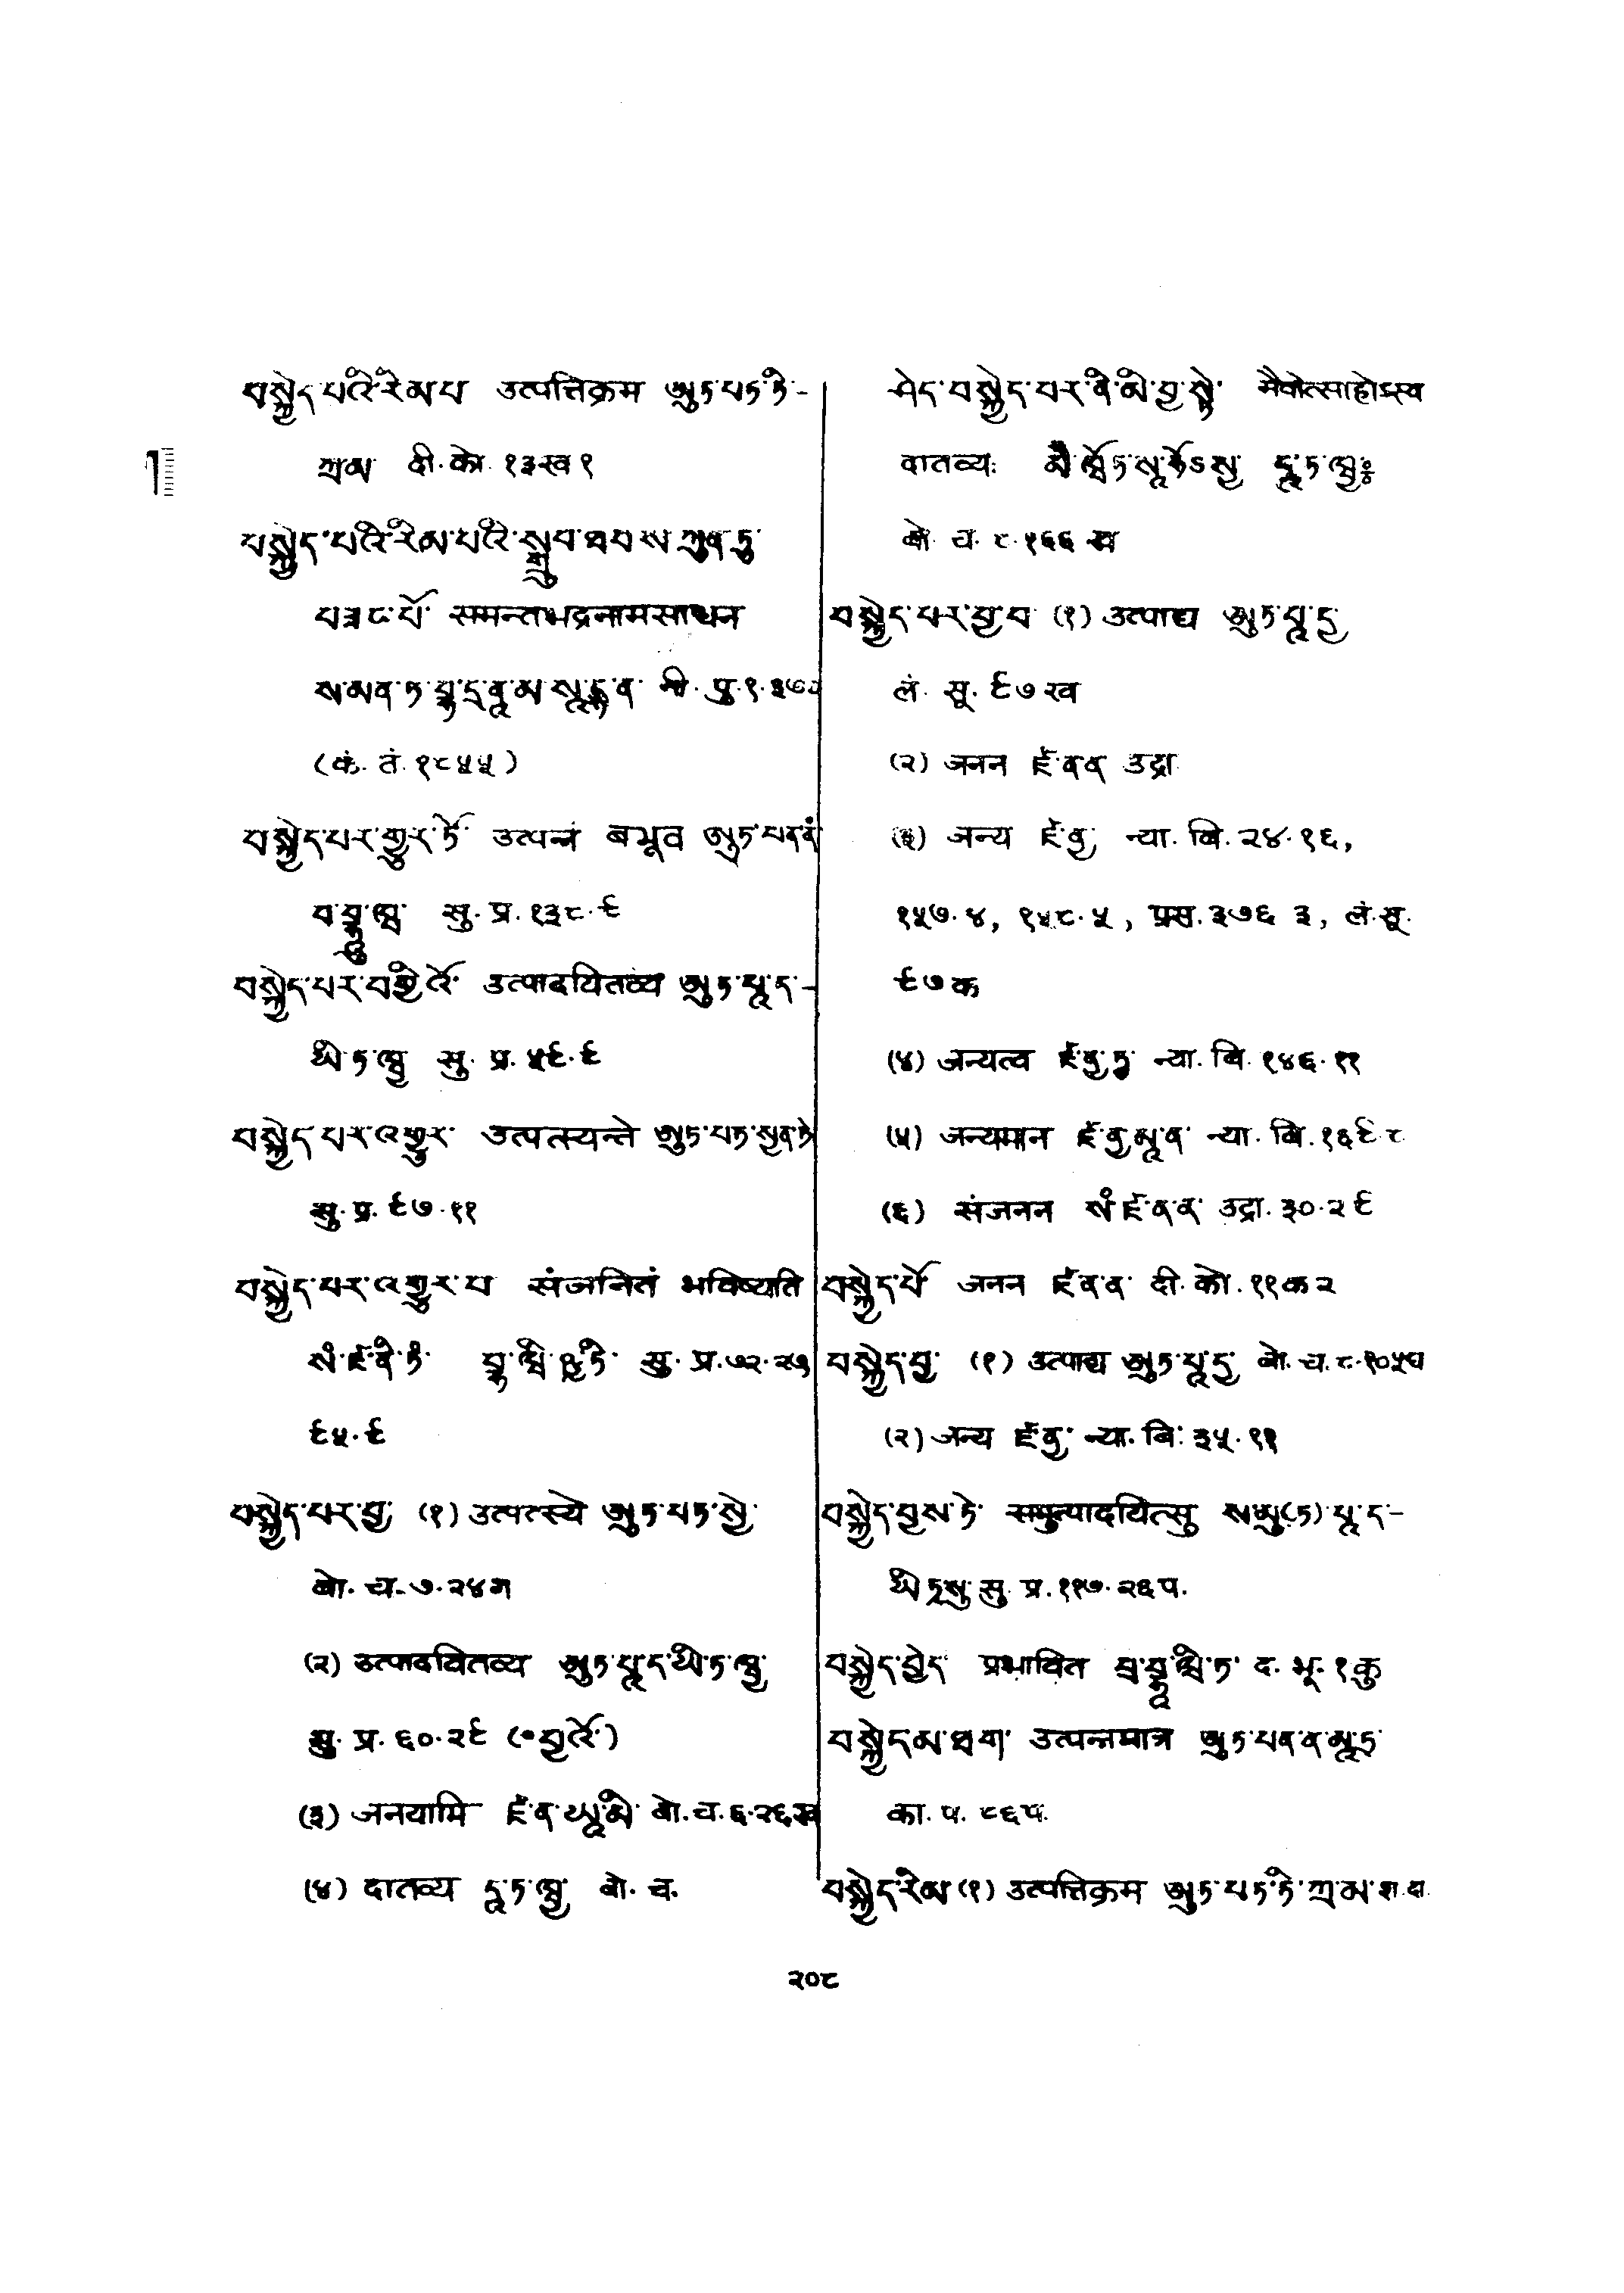 བསྐྱེད་པའི་རིམ་པ उत्पत्तिक्रम ཨུཏ་པཏ་ཏི་-
ཀྲམ दी. को. १३ख१
བསྐྱེད་པའི་རིམ་པའི་སྒྲུབ་ཐབས་ཀུན་ཏུ་
བཟང་པོ་ समन्तभद्रनामसाधन
ས་མན་ཏ་བྷ་དྲ་ནཱ་མ་སཱ་དྷ་ན་ पु. १.
(कं. तं. १८५५)
བསྐྱེད་པར་གྱུར་ཏོ་ उत्पन्नं बभूव ཨུཏ་པནནཾ
བ་བྷཱུ་ཝ་ सु. प्र. १३८.९
བསྐྱེད་པར་བགྱིའོ་ उत्पादयितव्य ཨུཏ་པཱ་ད་-
ཡི་ཏ་ཝྱ་ सु. प्र. ५९.९
བསྐྱེད་པར་འགྱུར་ उत्पत्स्यन्ते ཨུཏ་པཏ་སྱནཏེ
सु. प्र. ९७.११
བསྐྱེད་པར་འགྱུར་བ संजनितं भविष्यति
སཾ་ཛ་ནི་ཏཾ་ བྷ་ཝི་ཥྱ་ཏི་ सु. प्र. ७२.२५
९५.९
བསྐྱེད་པར་བྱ་ (१) उत्पत्स्ये ཨུཏ་པཏ་སྱེ་
बो. च. ७.२४ग
(२) उत्पादयितव्य ཨུཏ་པཱ་ད་ཡི་ཏ་ཝྱ་
सु. प्र. ६०.२९ (॰བྱའོ་)
(३) जनयामि ཛ་ན་ཡཱ་མི་ बो. च. ६.२६ख
(४) दातव्य དཱ་ཏ་ཝྱ་ बो. च.
ཤེད་བསྐྱེད་པར་ནི་མི་བྱ་སྟེ་ नैवोत्साहोऽस्य
दातव्यः སྱ་ དཱ་ཏ་ཝྱཿ
बो. च. ८.१६६
བསྐྱེད་པར་བྱ་བ (१) उत्पाद्य ཨུཏ་པཱ་དྱ
लं. सू. ९७ख
(२) जनन ཛ་ནན་ उद्रा
(३) जन्य ཛ་ནྱ་ न्या. बि. २४.१६,
१५७.४, १५८.५, प्रस. ३७६ ३, लं. सू.
९७क
(४) जन्यत्व ཛ་ནྱ་ཏྭ न्या. बि. १४६.११
(५) जन्यमान ཛ་ནྱ་མཱ་ན་ न्या. बि. १६९.८
(६) संजनन སཾ་ཛ་ནན་ उद्रा. ३०.२९
བསྐྱེད་པོ་ जनन ཛ་ནན་ दी. को. ११क२
བསྐྱེད་བྱ་ (१) उत्पाद्य ཨུཏ་པཱ་དྱ་ बो. च. ८.१०५घ
(२) जन्य ཛ་ནྱ་ न्या. बि. ३५.११
བསྐྱེད་བྱས་ཏེ་ समुत्पादयित्सु ས་མུ(ཏ)་པཱ་ད་-
ཡི་ཏྶུ་ सु. प्र. ११७.२६प.
བསྐྱེད་བྱེད प्रभावित པྲ་བྷཱ་ཝི་ཏ་ द. भू. १कु
བསྐྱེད་མ་ཐག་ उत्पन्नमात्र ཨུཏ་པནན་མཱ་ཏྲ་
का. प. ८६प.
བསྐྱེད་རིམ (१) उत्पत्तिक्रम ཨུཏ་པཏ་ཏི་ཀྲམ་
२०८